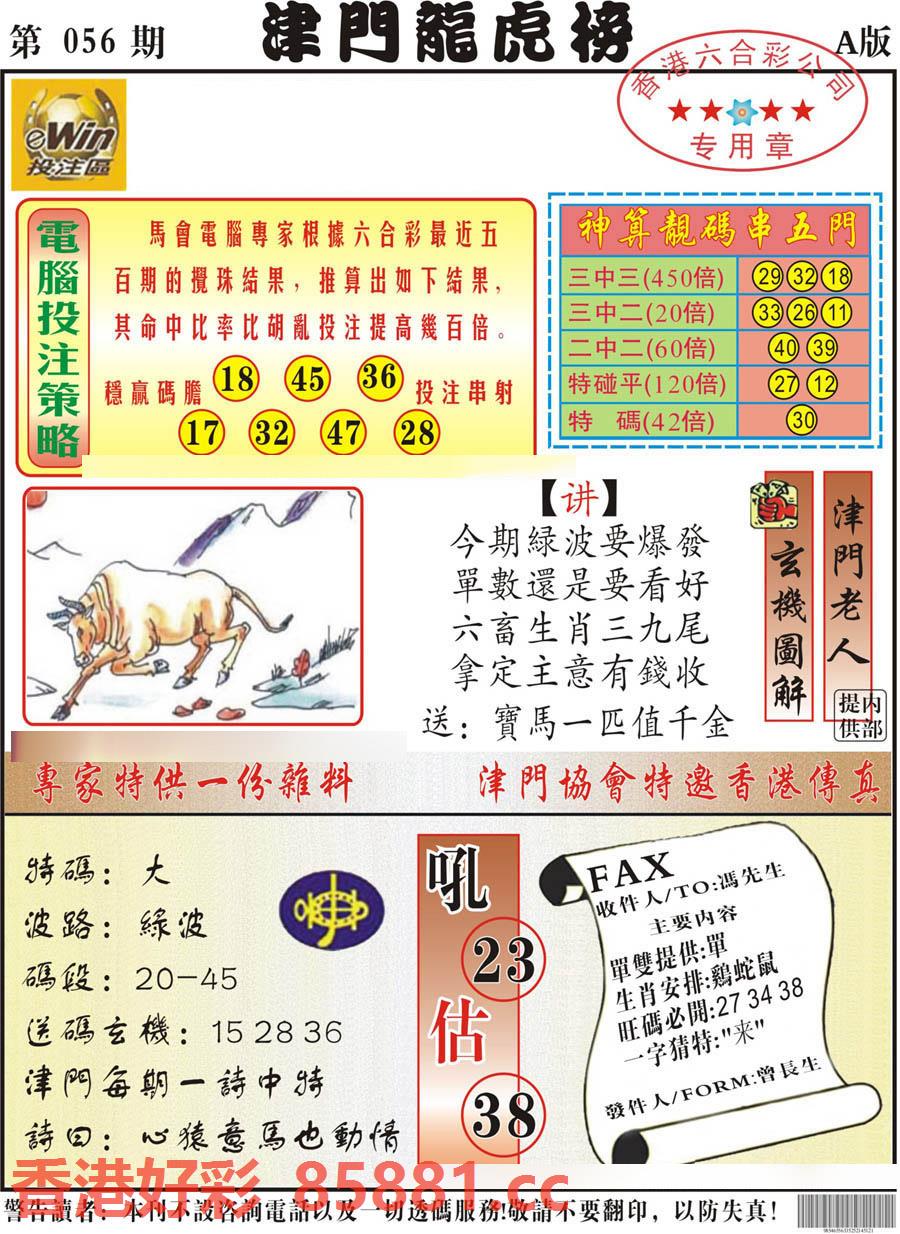 第 056 期
津門龍虎榜
A版
香港六合彩公司
专用章
eWin
投注區
電腦投注策略
馬會電腦專家根據六合彩最近五
百期的攪珠結果，推算出如下結果，
其命中比率比胡亂投注提高幾百倍。
穩贏碼膽 18 45 36 投注串射
17 32 47 28
神算靚碼串五門
三中三(450倍) 29 32 18
三中二(20倍) 33 26 11
二中二(60倍) 40 39
特碰平(120倍) 27 12
特 碼(42倍) 30
【讲】
今期緑波要爆發
單數還是要看好
六畜生肖三九尾
拿定主意有錢收
送：寶馬一匹值千金
玄機圖解
津門老人
内部提供
專家特供一份雜料
津門協會特邀香港傳真
特碼：大
波路：綠波
碼段：20-45
送碼玄機：15 28 36
津門每期一詩中特
詩曰：心猿意馬也動情
吼
23
估
38
FAX
收件人/TO:馮先生
主要内容
單雙提供:單
生肖安排:鷄蛇鼠
旺碼必開:27 34 38
一字猜特:"来"
發件人/FORM:曾長生
香港好彩 85881.cc
警告讀者：本刊不設咨詢電話以及一切透碼服務!敬請不要翻印，以防失真!